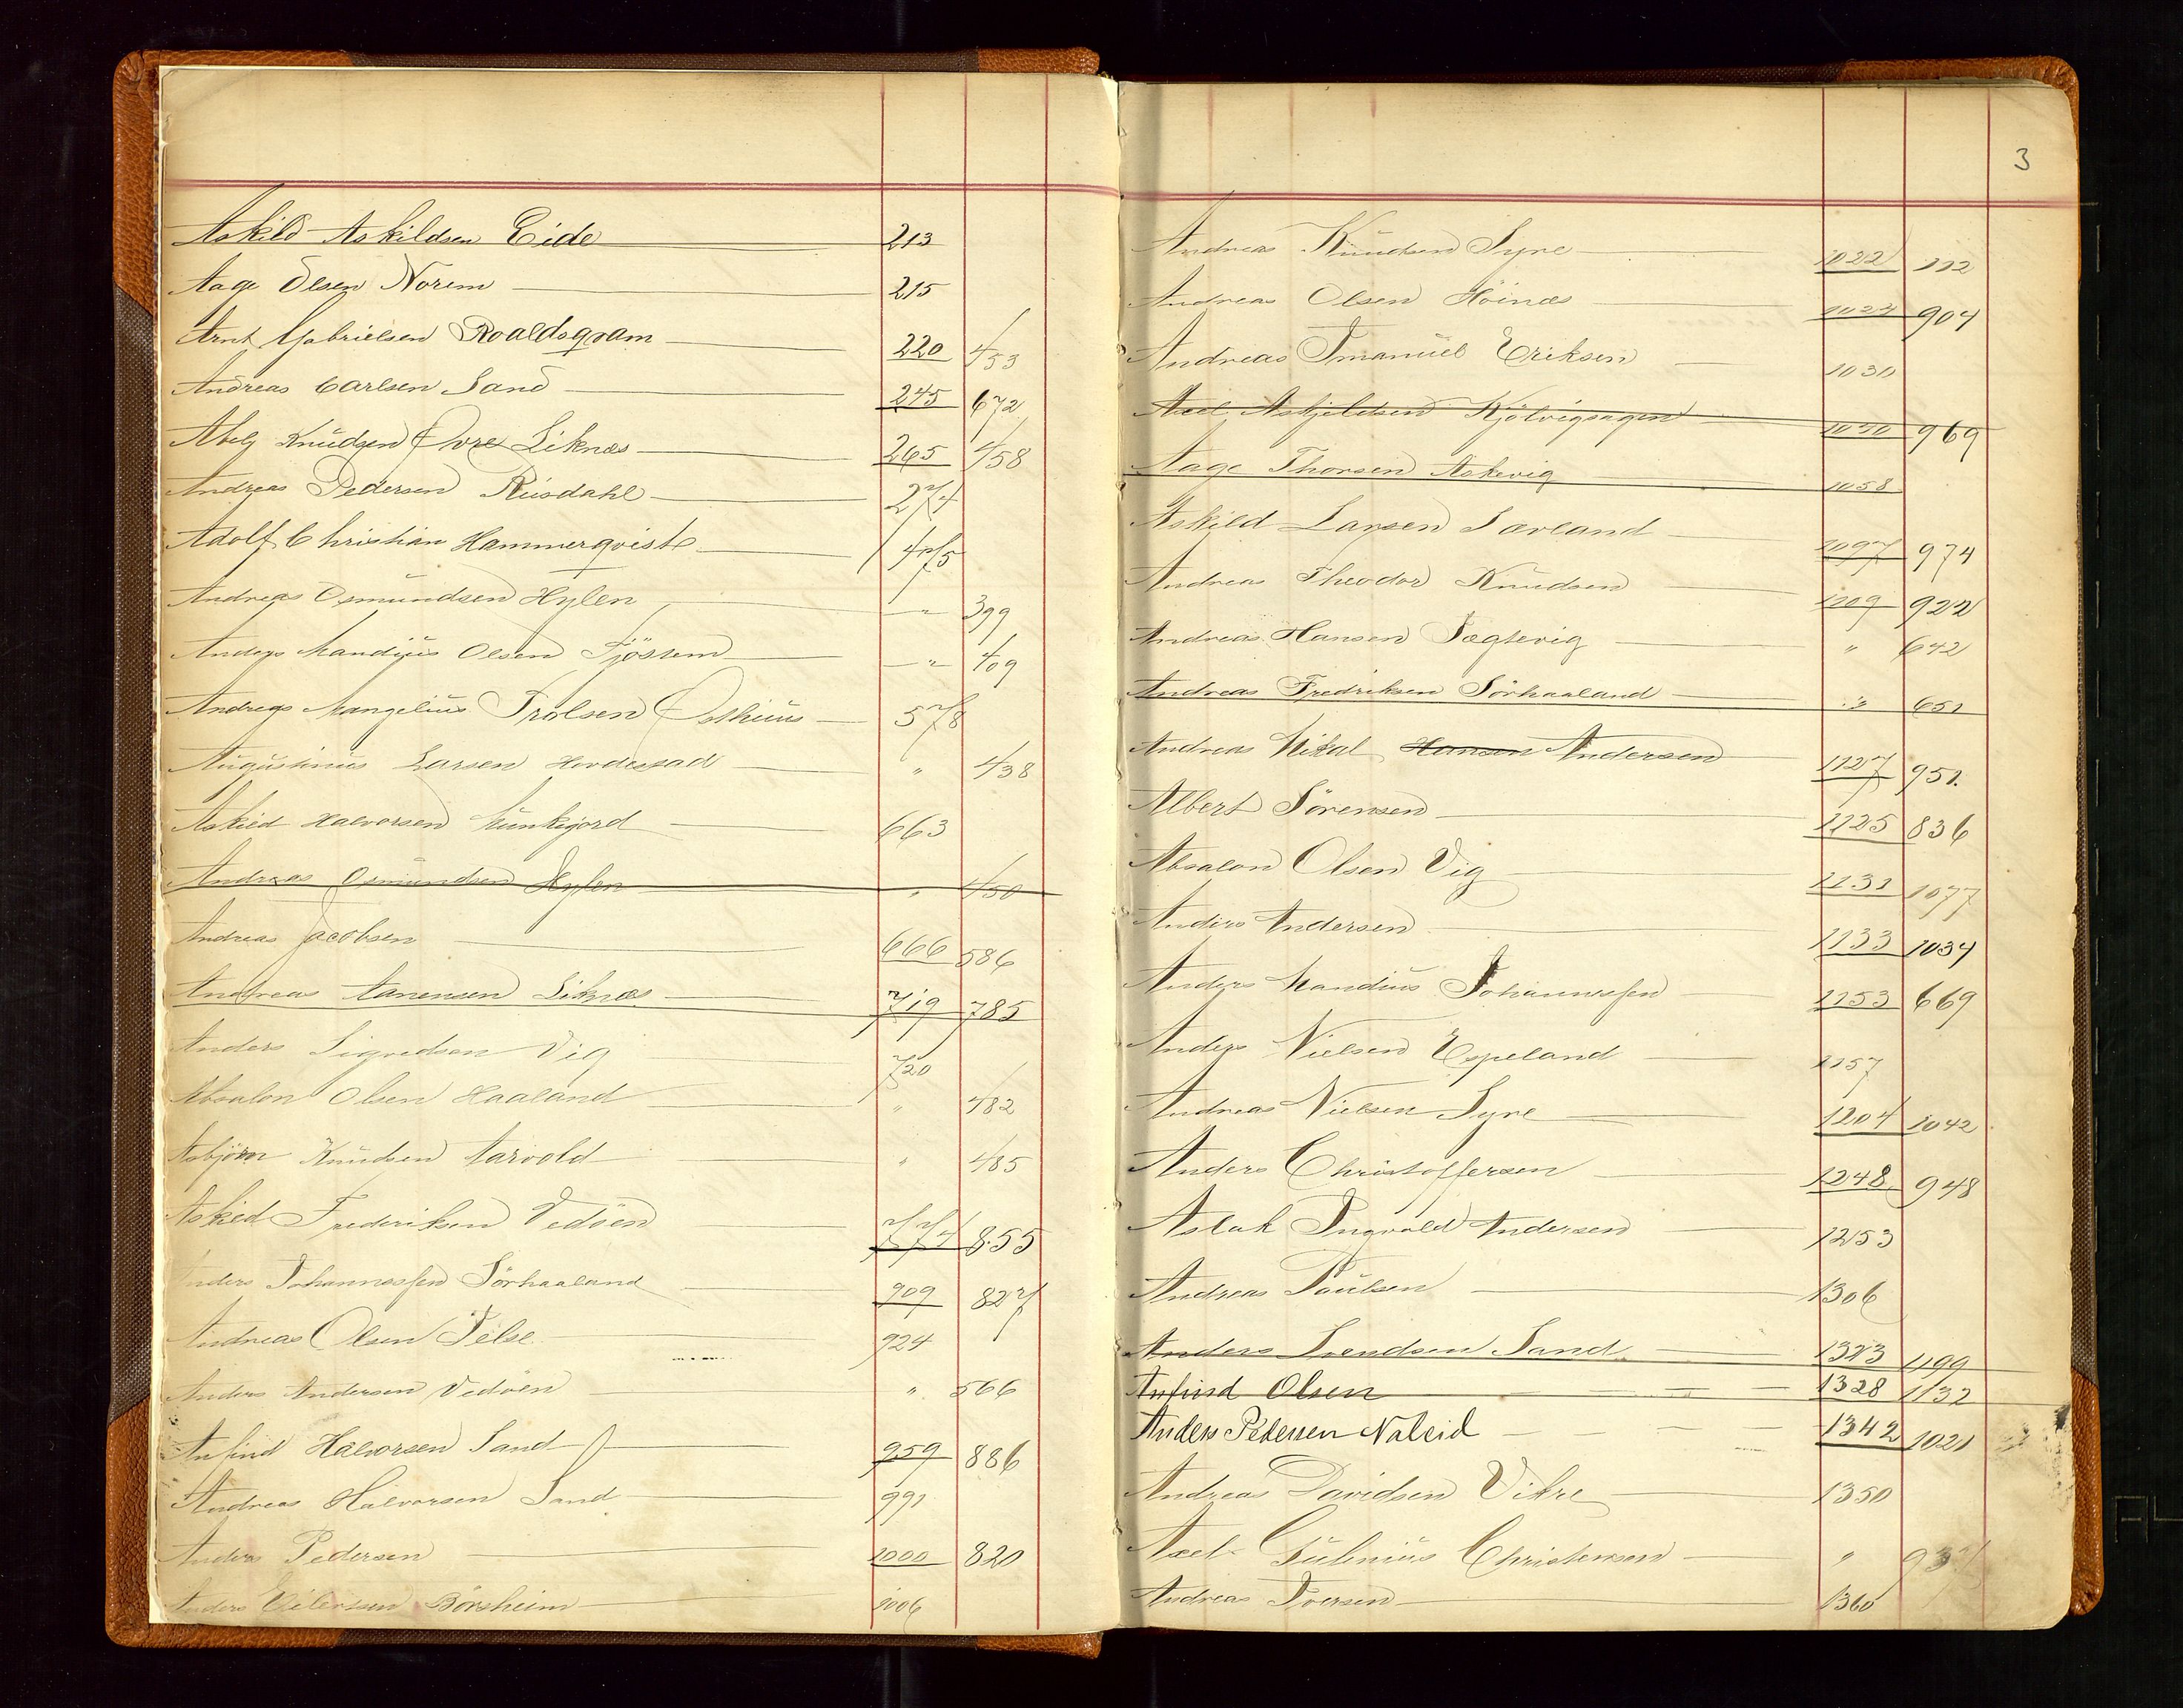 Askild Askildsen Eide 213
Aage Olsen Norem 215
Arnt Gabrielsen Roaldsqvam 220 453
Andreas Carlsen Sand 245 672
Abel Knudsen Øvre Liknæs 265 458
Andreas Pedersen Riisdahl 274
Adolf Christian Hammerqvist 475
Andreas Osmundsen Hylen " 399
Anders Mandius Olsen Fjössem " 409
Andreas Mangelius Trolsen Østhuus 578
Augustinus Larsen " 438
Askild Halvorsen Munkejord 663
Andreas Osmundsen Hylen " 450
Andreas Jacobsen 666 586
Andreas Aanensen Liknæs 719 785
Anders Sigvedsen Vig 720
Absalon Olsen Haaland " 482
Asbjörn Knudsen Aarvold " 485
Askild Frederiksen Vedöen 774 855
Anders Johannessen Sörhaaland 909 827
Andreas Olsen 924
Anders Andersen Vedöen " 566
Anfind Halvorsen Sand 959 886
Andreas Halvorsen Sand 991
Anders Pedersen 1000 820
Anders Eilertsen Börsheim 1006
3
Andreas Knudsen Syre 1022 112
Andreas Olsen Höinæs 1024 904
Andreas Imanuel Eriksen 1030
Axel Askjeldsen 1050 969
Aage Thorsen Askevig 1058
Askild Larsen Sørland 1097 974
Andreas Theodor Knudsen 1109 922
Andreas Hansen Tegtevig " 642
Andreas Fredriksen Sörhaaland " 651
Andreas Mikal Hansen Andersen 1127 951.
Albert Sörensen 1125 836
Absalon Olsen Vig 1131 1077
Anders Andersen 1133 1034
Anders Mandius Johannessen 1153 669
Anders Nielsen Espeland 1157
Andreas Nielsen Syre 1204 1042
Anders Christoffersen 1248 948
Aslak Ingvald Andersen 1253
Andreas Paulsen 1306
Anders Svendsen Sand 1323 1199
Anfind Olsen 1328 1132
Anders Pedersen Naleid 1342 1021
Andreas Davidsen Vikre 1350
Axel Julenius Christensen "
Andreas Iversen 1360